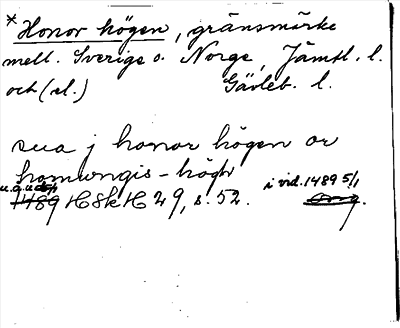 * Honor högen, gränsmärke
mell. Sverige o. Norge, Jämtl. l.
och (el.) Gävleb. l.
sua j honor högen or
homungis-högh
u.å. i vid. 1489 5/1
1489 HSkH 29, s. 52. orig.